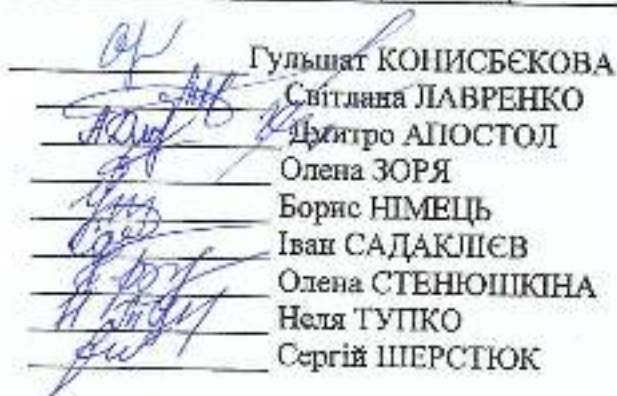 Гульшат КОНИСБЄКОВА
Світлана ЛАВРЕНКО
Дмитро АПОСТОЛ
Олена ЗОРЯ
Борис НІМЕЦЬ
Іван САДАКЛІЄВ
Олена СТЕНЮШКІНА
Неля ТУПКО
Сергій ШЕРСТЮК